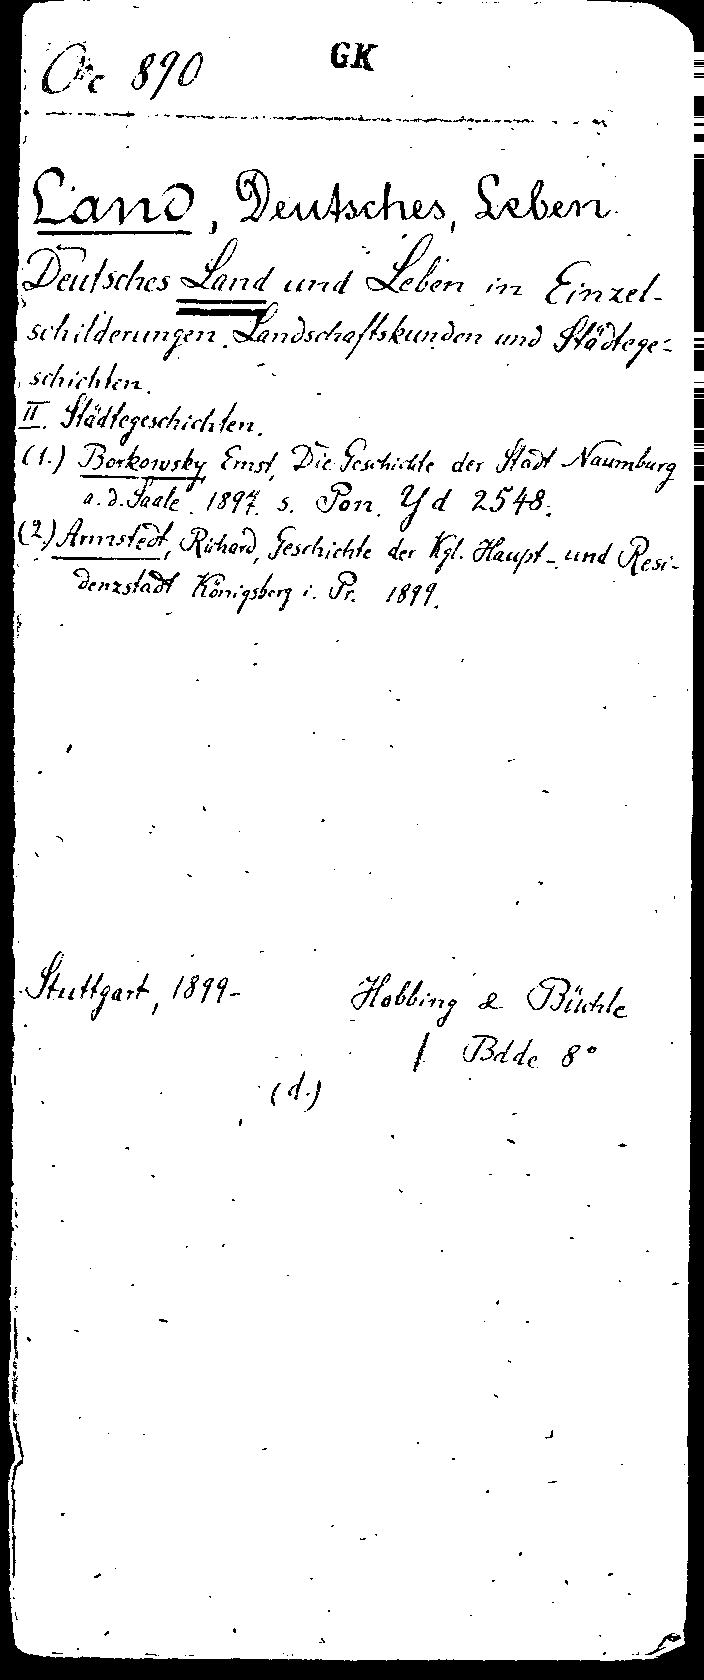 Oc 890
GK
Land, Deutsches, Leben
Deutsches Land und Leben in Einzel-
schilderungen. Landschaftskunden und Städtege-
schichten.
II. Städtegeschichten.
(1.) Borkowsky Ernst, Die Geschichte der Stadt Naumburg
a. d. Saale. 1897. s. Pon. Yd 2548.
(2.) Armstedt, Richard, Geschichte der Kgl. Haupt- und Resi-
denzstadt Königsberg i. Pr. 1899.
Stuttgart, 1899-
Hobbing & Büchle
/ Bdde 8°
(d.)